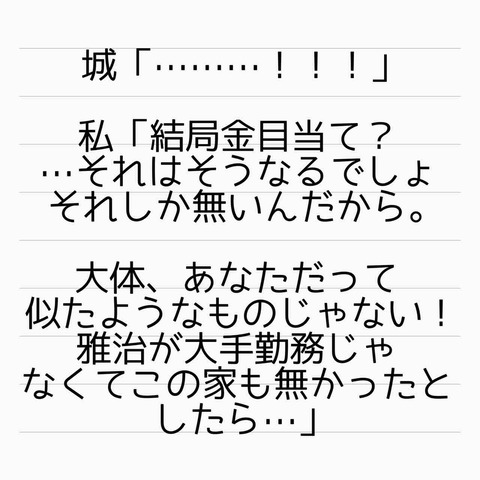 城「………！！！」
私「結局金目当て？
…それはそうなるでしょ
それしか無いんだから。
大体、あなただって
似たようなものじゃない！
雅治が大手勤務じゃ
なくてこの家も無かったと
したら…」